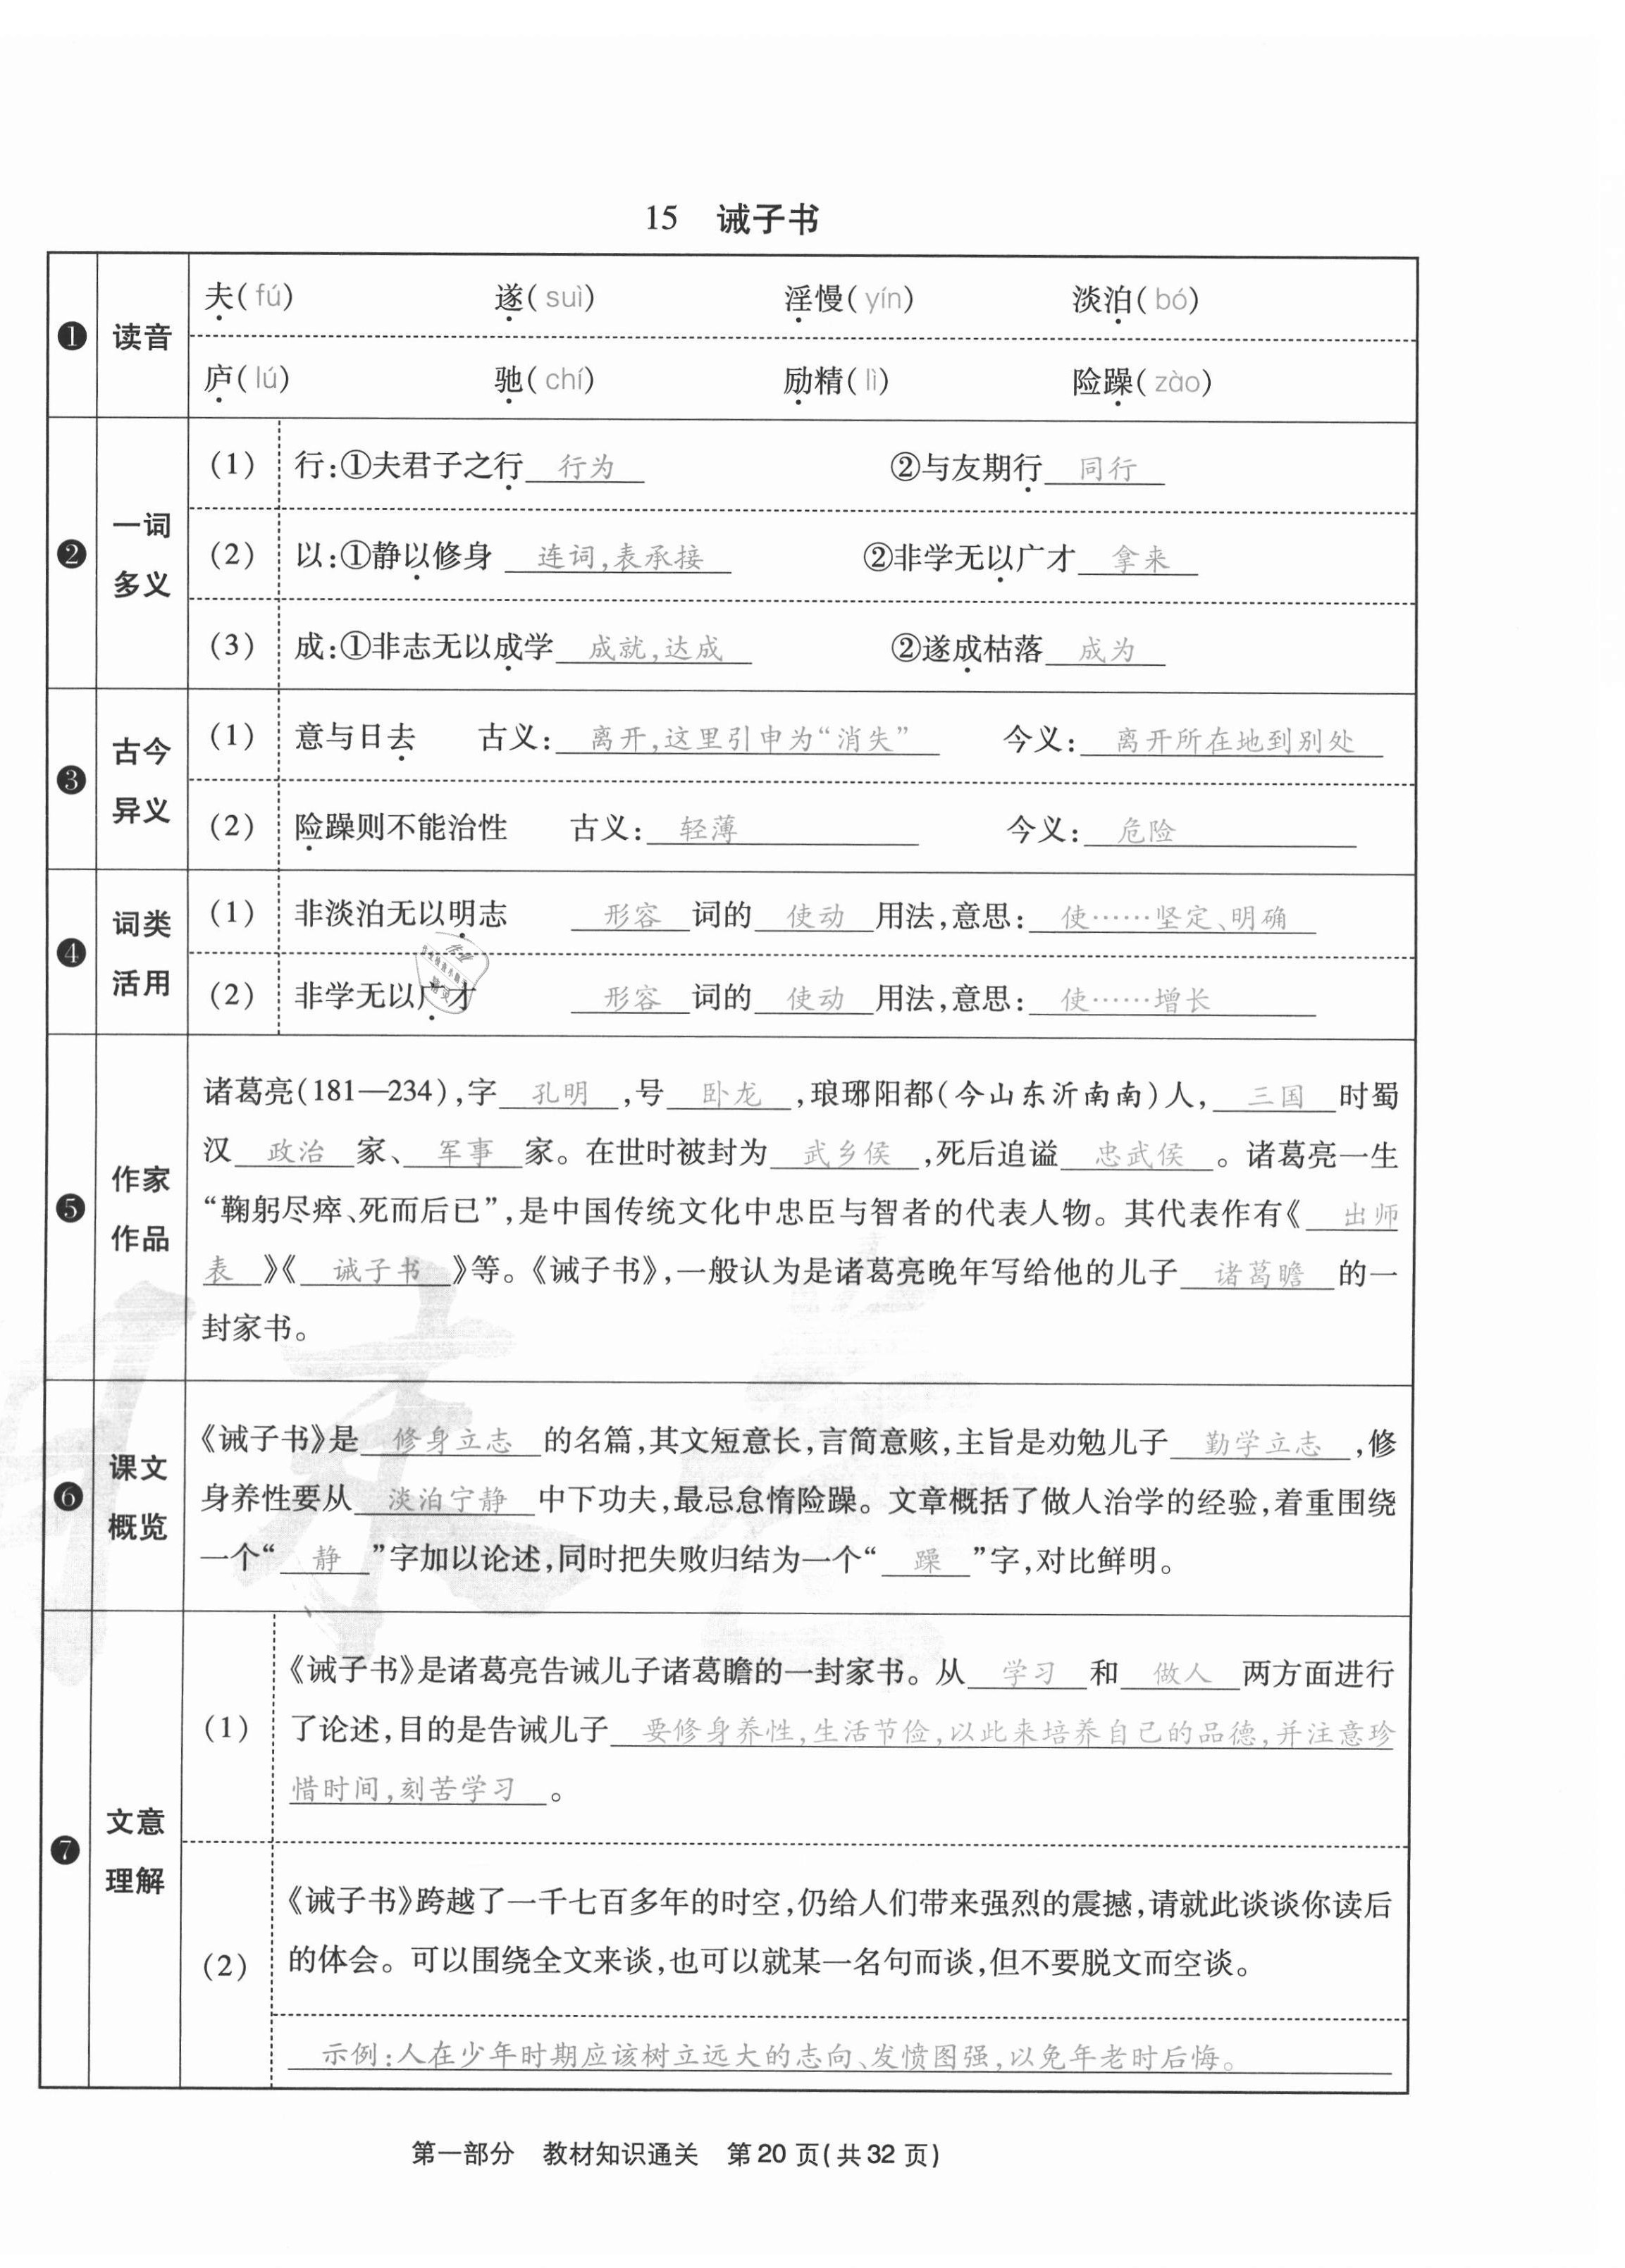 15 诫子书
❶ 读音
夫(fú) 遂(suì) 淫慢(yín) 淡泊(bó)
庐(lú) 驰(chí) 励精(lì) 险躁(zào)
❷ 一词多义
(1) 行:①夫君子之行 行为 ②与友期行 同行
(2) 以:①静以修身 连词,表承接 ②非学无以广才 拿来
(3) 成:①非志无以成学 成就,达成 ②遂成枯落 成为
❸ 古今异义
(1) 意与日去 古义: 离开,这里引申为“消失” 今义: 离开所在地到别处
(2) 险躁则不能治性 古义: 轻薄 今义: 危险
❹ 词类活用
(1) 非淡泊无以明志 形容 词的 使动 用法,意思: 使……坚定、明确
(2) 非学无以广才 形容 词的 使动 用法,意思: 使……增长
❺ 作家作品
诸葛亮(181—234),字 孔明 ,号 卧龙 ,琅琊阳都(今山东沂南南)人, 三国 时蜀
汉 政治 家、 军事 家。在世时被封为 武乡侯 ,死后追谥 忠武侯 。诸葛亮一生
“鞠躬尽瘁、死而后已”,是中国传统文化中忠臣与智者的代表人物。其代表作有《 出师
表 》《 诫子书 》等。《诫子书》,一般认为是诸葛亮晚年写给他的儿子 诸葛瞻 的一
封家书。
❻ 课文概览
《诫子书》是 修身立志 的名篇,其文短意长,言简意赅,主旨是劝勉儿子 勤学立志 ,修
身养性要从 淡泊宁静 中下功夫,最忌怠惰险躁。文章概括了做人治学的经验,着重围绕
一个“ 静 ”字加以论述,同时把失败归结为一个“ 躁 ”字,对比鲜明。
❼ 文意理解
(1)
《诫子书》是诸葛亮告诫儿子诸葛瞻的一封家书。从 学习 和 做人 两方面进行
了论述,目的是告诫儿子 要修身养性,生活节俭,以此来培养自己的品德,并注意珍
惜时间,刻苦学习 。
(2)
《诫子书》跨越了一千七百多年的时空,仍给人们带来强烈的震撼,请就此谈谈你读后
的体会。可以围绕全文来谈,也可以就某一名句而谈,但不要脱文而空谈。
示例:人在少年时期应该树立远大的志向、发愤图强,以免年老时后悔。
第一部分 教材知识通关 第20页(共32页)